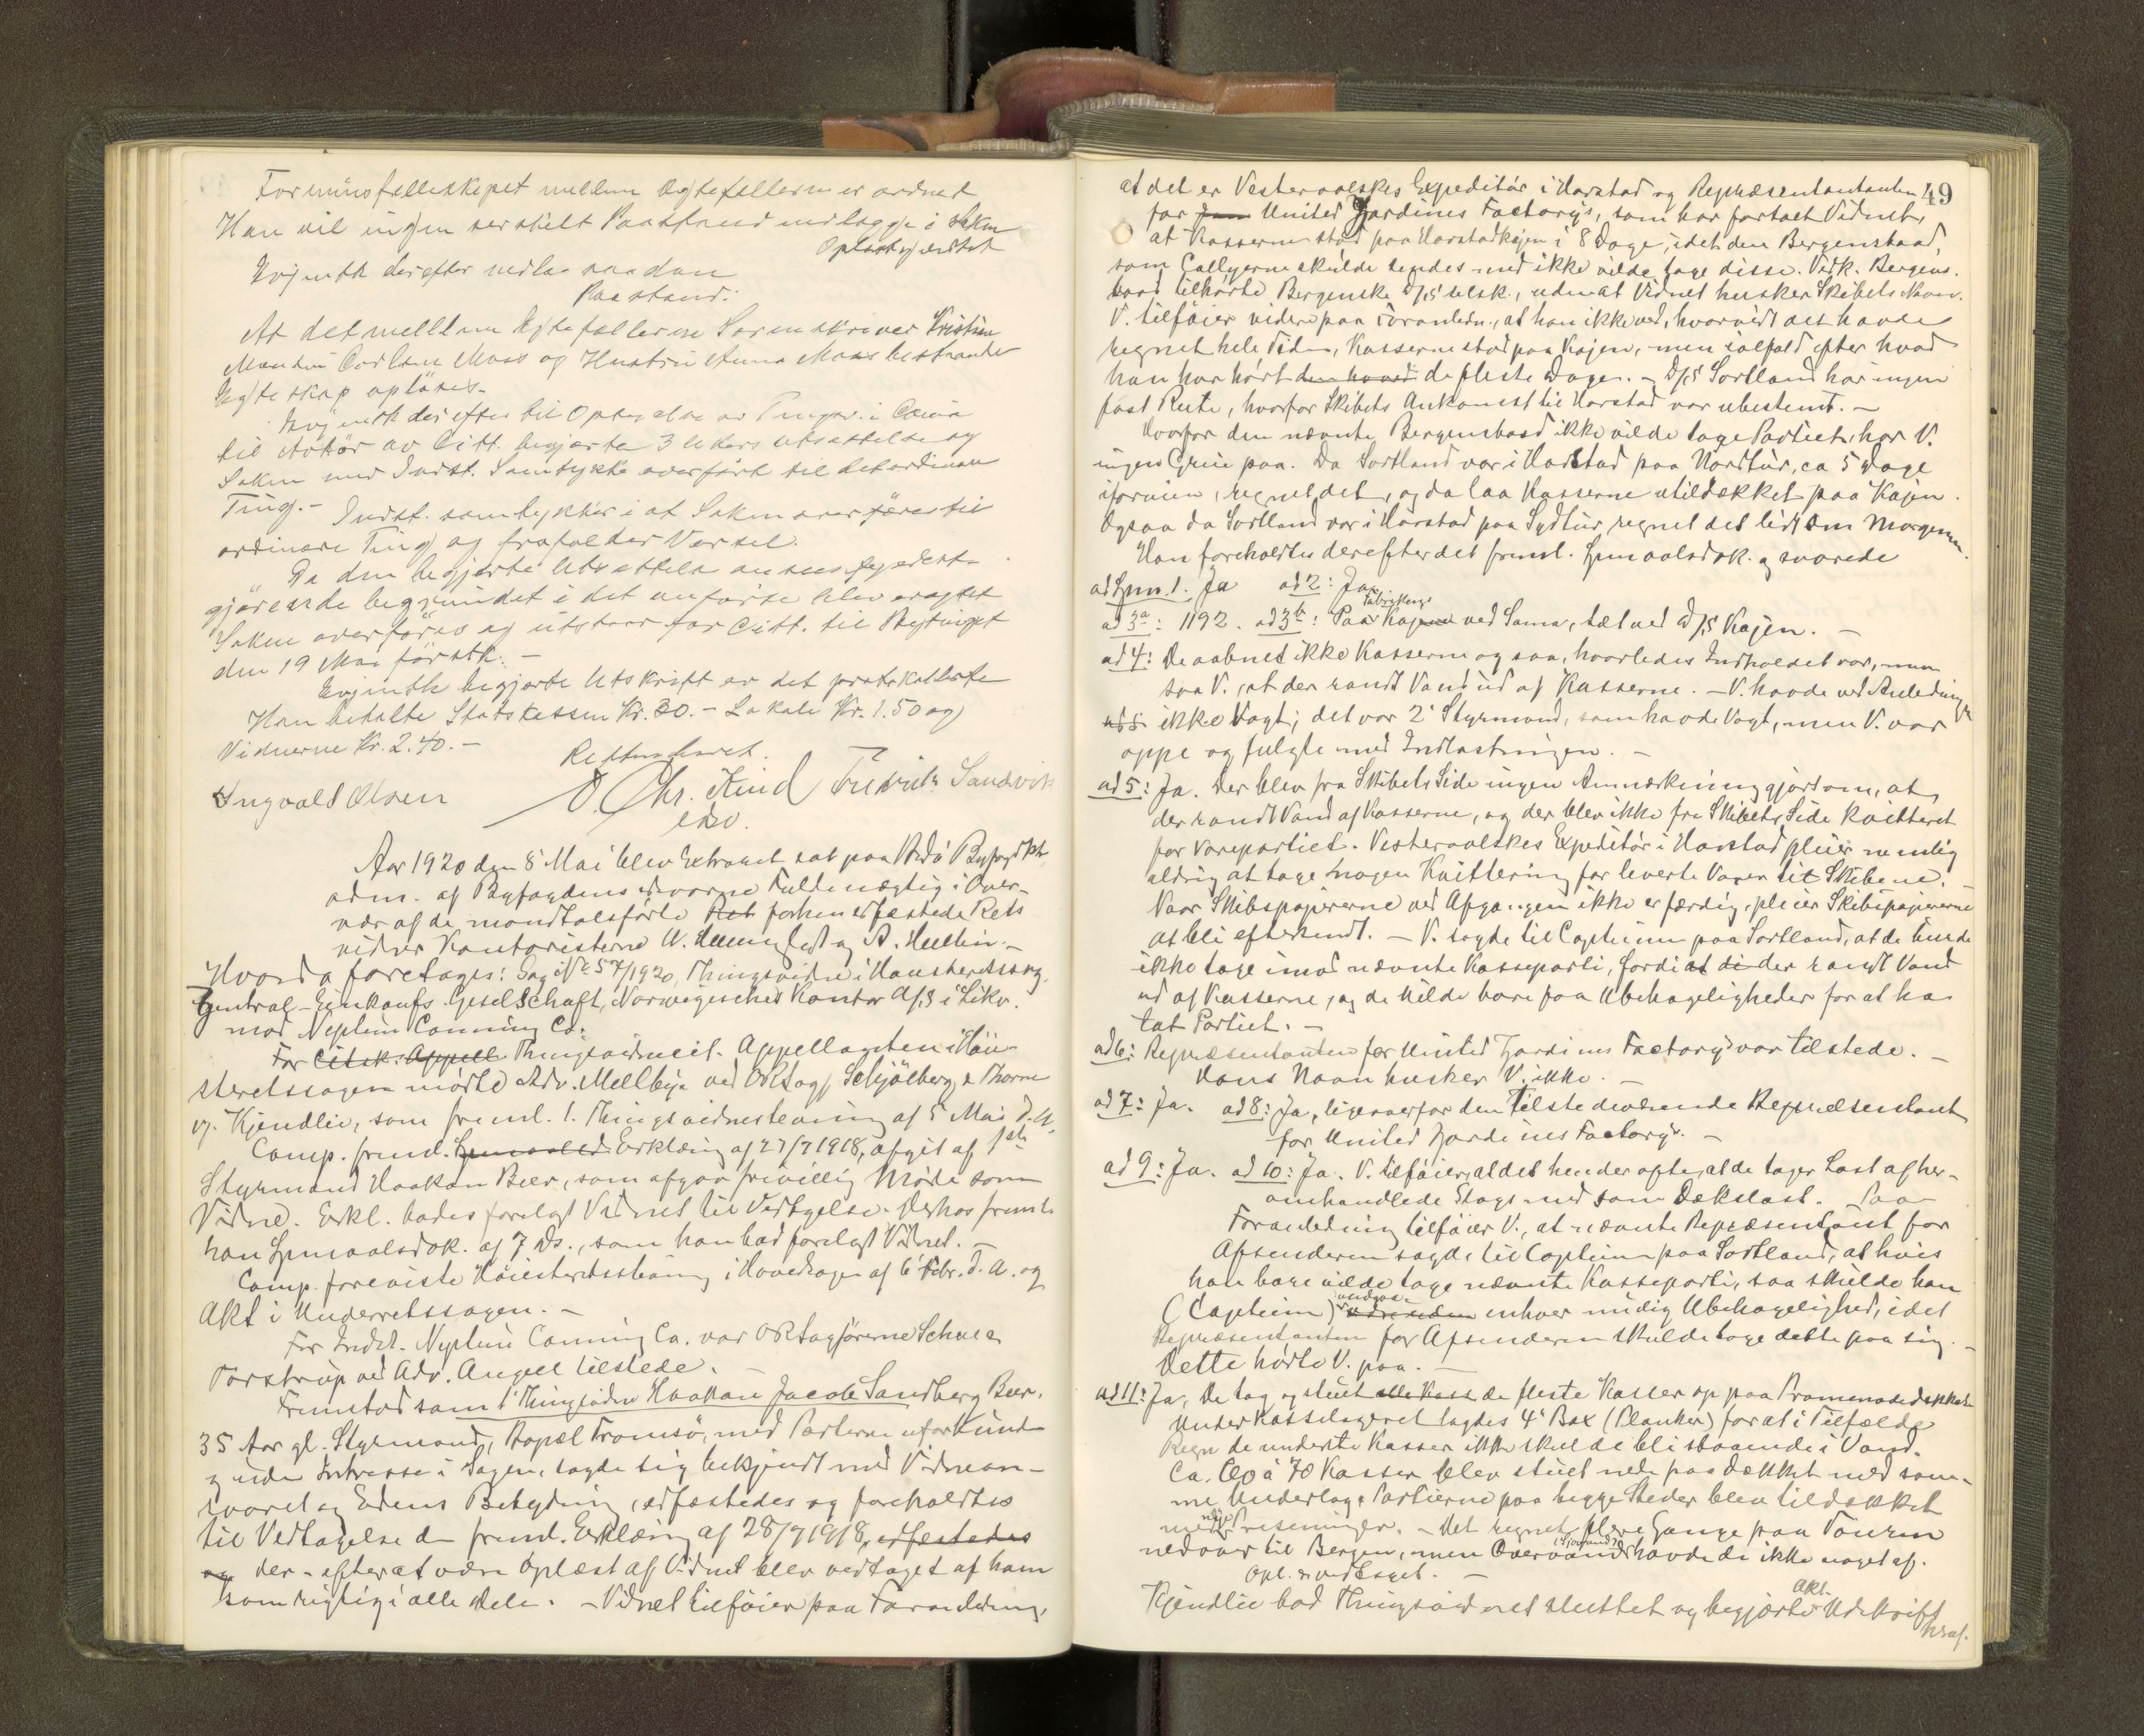 Formuesfelleskapet mellem Egtefellerne er ordnet
Han vil ingen serskilt Paastand nedlægge i Saken
Oplæst vedtat
Evjenth derefter nedla saadan
Paastand:
At det mellem Egtefellerne Sorenskriver Kristian
Carlsen Moss og Hustru Anna Moss bestaaende
Egteskap opløses.
Evjenth derefter til Optagelse av
til av Citt. begjærte 3 Ukers Utsettelse og
Saken med Indst. Samtykke overført til det ordinære
Ting. - Indst. samtykker i at Saken overføres til
ordinære Ting og frafalder Varsel.
Da den begjærte Utsettelse ansees fyldest-
gjørende begrundet i det anførte blev eragtet
Saken overføres og utstaar for Citt. til Bytinget
den 19 Mai førstk. -
Evjenth begjærte Utskrift av det protokollerte
Han betalte Statskassen Kr. 30.- Lokale Kr. 1.50 og
Vidnerne Kr. 2.40. -
Retten hævet.
Ingvald Olsen O. Chr. Kind Fredrik Sandvik
edsv.
Aar 1920 den 8 Mai blev Extraret sat paa Bodø Byfogdkt.
adm. af Byfogdens edsvorne Fuldmægtig i Over-
vær af de mandtalsførte Ret forhen edfæstede Rets
vidner Kontoristerne U. og A.
Hvorda foretages: Sag No 57/1920, Thingsvidne i Høiesteretssag
Zentral-Einkaufs-Gesellschaft, Norwegisches Kontor A/S i Likv.
mod Neptun Canning Co.
For Citsk. Appell Thingsvidneit. Appellanten i Høie
steretssagen mødte Adv. Mellbye ved ORsagf. Schjölberg &
v. Kjendlie, som freml. 1. Thingsvidnestevning af 5 Mai d. A.
Comp. freml. Spmaalsd Erklæring af 27/7 1918, afgit af 1ste
Styrmand Haakon Beer, som afgav frivillig Møde som
Vidne. Erkl. bades forelagt Vidnet til Vedtagelse. Derhos freml.
han Spmaalsdok. af 7. Ds., som han bad forelagt Vidnet. -
Comp. foreviste Høiesteretsstevning i Hovedsagen af 6 Febr. d. A. og
Akt i Underretssagen. -
For Indst. Neptun Canning Co. var ORsagførerne
Torstrup ved Adv. Angell tilstede. -
Fremstod som 1' Thingsvidne Haakon Jacob Sandberg Beer,
35 Aar gl. Styrmand, Bopæl Tromsø, med Parterne uforbunden
og uden Intresse i Sagen, sagde sig bekjendt med Vidnean-
svaret og Edens Betydning, edfæstedes og foreholdtes
til Vedtagelse den freml. Erklæring af 28/7 1918, edfestedes
og der - efterat være oplæst af Vidnet blev vedtaget af ham
som rigtig i alle Dele. - Vidnet tilføier paa Foranledning,
49
at det er Vesteraalskes Expeditør i Harstad og Repræsentantanten
for Jun United Sardines Factorys, som har fortalt Vidnet,
at Kasserne stod paa Harstadkajen i 8 Dage, idet den Bergensbaad,
som Collyerne skulde sendes med ikke vilde tage disse. Vedk. Bergens-
baad tilhørte Bergenske D/S selsk., uden at Vidnet husker Skibets Navn.
V. tilføier videre paa Foranledn., at han ikke ved, hvorvidt det havde
regnet hele Tiden, Kasserne stod paa Kajen, men ialfald efter hvad
han har hørt den havde de fleste Dage. - D/S Sortland har ingen
fast Rute, hvorfor Skibets Ankomst til Harstad var ubestemt. -
Hvorfor den nævnte Bergensbaad ikke vilde tage Partiet, har V.
ingen Greie paa. Da Sortland var i Harstad paa Nordtur, ca 5 Dage
iforveien, regnet det, og da laa Kasserne utildækket paa Kajen.
Ogsaa da Sortland var i Harstad paa Sydtur, regnet det lidt om Morgenen.
Han foreholdtes derefter det freml. Spmaalsdok. og svarede
ad Spm. 1. Ja ad 2: Ja
ad 3a: 1192. ad 3b: Paa Fabrikens Kajen ved Sama, tæt ved D/S Kajen. -
ad 4: De aabnet ikke Kasserne og saa, hvorledes Indholdet var, men
saa V., at der randt Vand ud af Kasserne. - V. havde ved Anledningen
ad 5: ikke Vagt; det var 2' Styrmand, som havde Vagt, men V. var
oppe og fulgte med Indlastningen. -
ad 5: Ja. Der blev fra Skibets Side ingen Anmærkning gjort om, at
der randt Vand af Kasserne, og der blev ikke fra Skibets Side kvitteret
for Varepartiet. Vesteraalskes Expeditør i Harstad pleier nemlig
aldrig at tage nogen Kvittering for leverte Varer til Skibene. -
Naar Skibspapirerne ved Afgangen ikke er færdig, pleier Skibspapirerne
at bli eftersendt. - V. sagde til Capteinen paa Sortland, at de burde
ikke tage imod nævnte Kasseparti, fordi at di der randt Vand
ud af Kasserne, og de vilde bare faa Ubehageligheder for at ha
tat Partiet. -
ad 6: Repræsentanten for United Sardines Factory var tilstede. -
Hans Navn husker V. ikke. -
ad 7: Ja. ad 8: Ja, ligeoverfor den tilstedeværende Repræsentant
for United Sardines Factory's. -
ad 9: Ja. ad 10: Ja. V. tilføier, at det hender ofte, at de tager Last af her-
omhandlede Slags med som Dækslast. Paa
Foranledning tilføier V., at nævnte Repræsentant for
Afsenderen sagde til Capteinen paa Sortland, at hvis
han bare vilde tage nævnte Kasseparti, saa skulde han
(Capteinen) undgaa enhver mulig Ubehagelighed, idet
Repræsentanten for Afsenderen skulde tage dette paa sig. -
Dette hørte V. paa. -
ad 11: Ja, De tog og stuet alle Kass de fleste Kasser op paa Promenadedækket
Under Kasselageret lagdes 4" Bax (Planker) for at i Tilfælde
Regn de underste Kasser ikke skulde bli staaende i Vand.
Ca. 60 à 70 Kasser blev stuet nede paa dækket med sam-
me Underlag. Partierne paa begge Steder blev tildækket
med nye Presenninger. - Det regnet flere Gange paa Touren
nedover til Bergen, men Overvand (Sjøvand) havde de ikke noget af.
Opl. & vedtaget. -
Kjendlie bad Thingsvidnet sluttet og begjærte Akt. Udskrift
heraf.